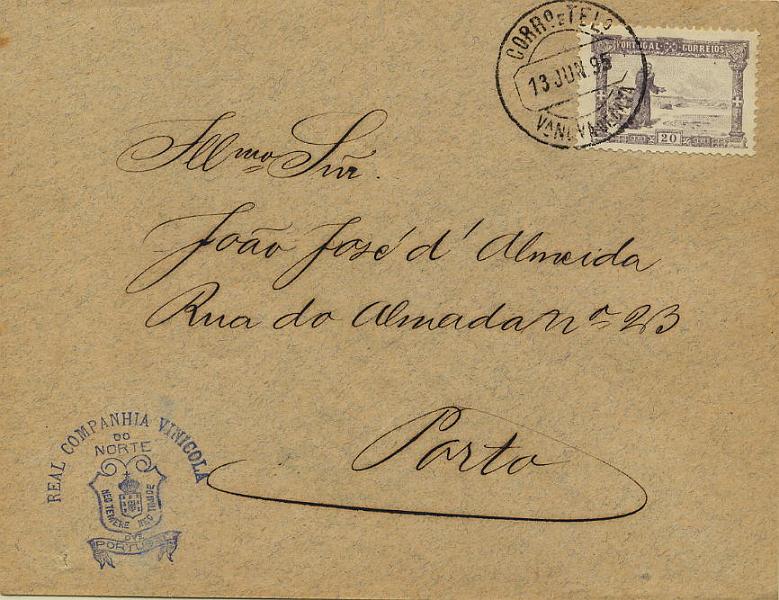 CORRO E TELO
13 JUN 95
PORTUGAL CORREIOS
20
Illmo Snr.
João José d'Almeida
Rua do Almada nº 23
Porto
REAL COMPANHIA VINICOLA
DO
NORTE
NEC TEMERE NEC TIMIDE
DE
PORTUGAL